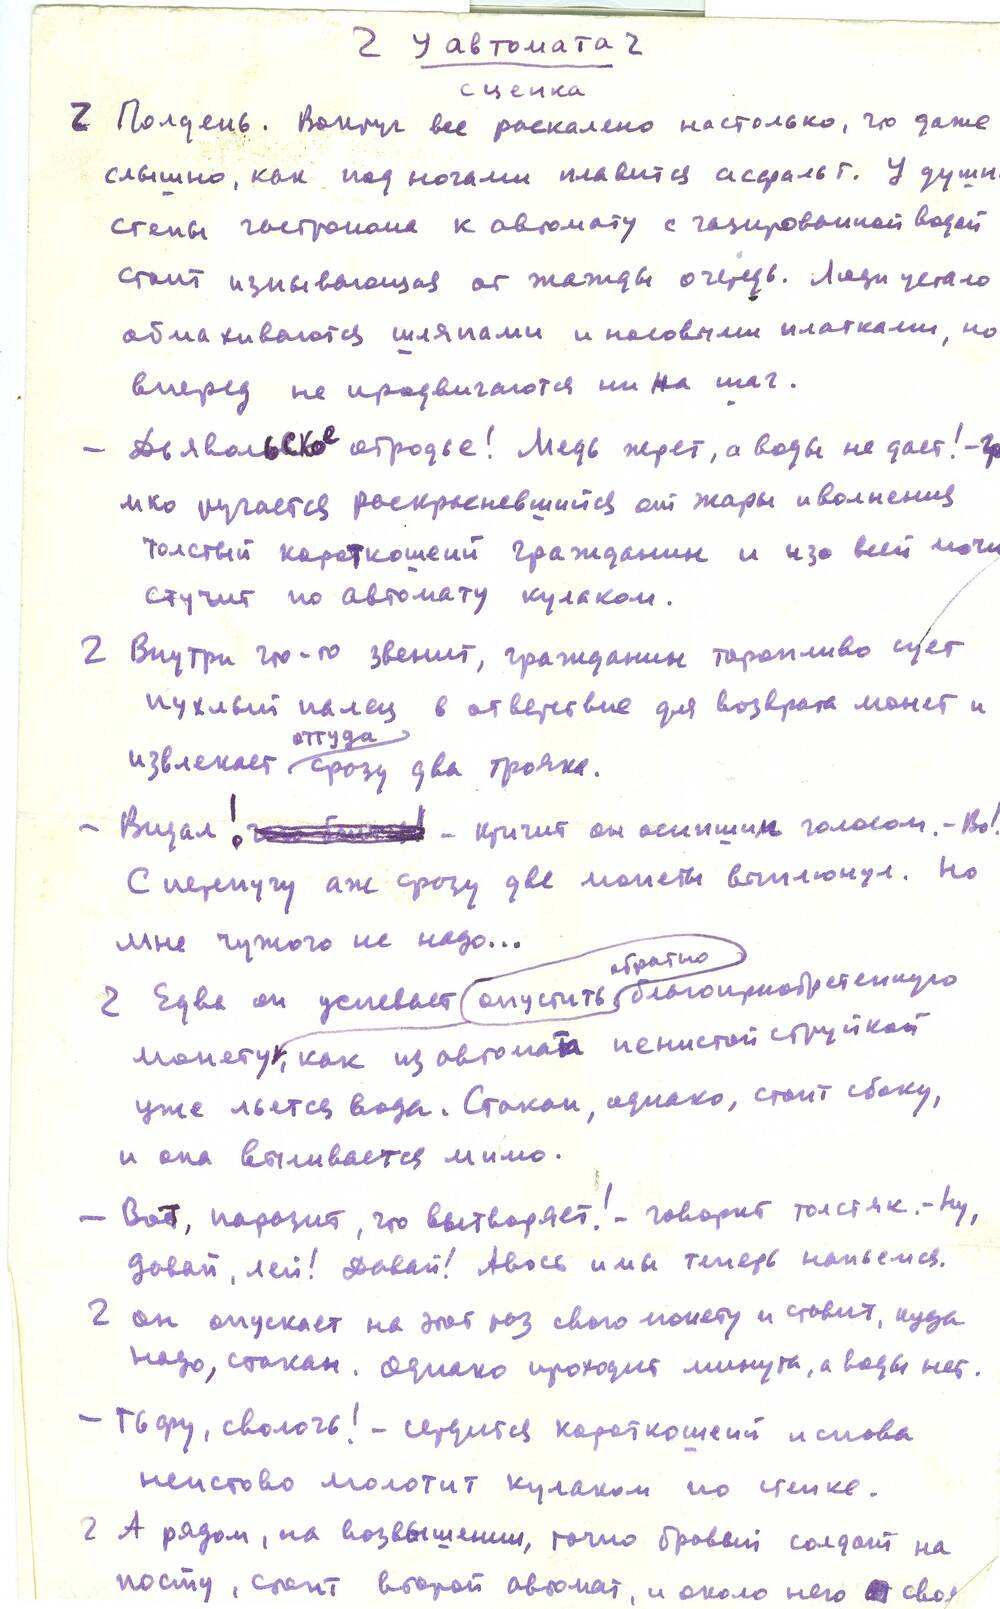 У автомата
сценка
Полдень. Вокруг все раскалено настолько, что даже
слышно, как под ногами плавится асфальт. У душн
стены гастронома к автомату с газированной водой
стоит изнывающая от жажды очередь. Люди устало
обмахиваются шляпами и носовыми платками, но
вперед не продвигаются ни на шаг.
— Дьявольское отродье! Медь жрет, а воды не дает! – Гро
мко ругается раскрасневшийся от жары и волнения
толстый короткошеий гражданин и изо всей мочи
стучит по автомату кулаком.
Внутри что-то звенит, гражданин торопливо сует
пухлый палец в отверстие для возврата монет и
оттуда
извлекает сразу два трояка.
— Видал! – кричит он осипшим голосом. – Во!
С перепугу аж сразу две монеты выплюнул. Но
мне чужого не надо...
обратно
Едва он успевает опустить благоприобретенную
монету, как из автомата пенистой струйкой
уже льется вода. Стакан, однако, стоит сбоку,
и она выливается мимо.
— Вот, паразит, что вытворяет! – говорит толстяк. – Ну,
давай, лей! Давай! Авось и мы теперь напьемся.
Он опускает на этот раз свою монету и ставит, куда
надо, стакан. Однако проходит минута, а воды нет.
— Тьфу, сволочь! – сердится короткошеий и снова
неистово молотит кулаком по стенке.
А рядом, на возвышении, точно бравый солдат на
посту, стоит второй автомат, и около него своя